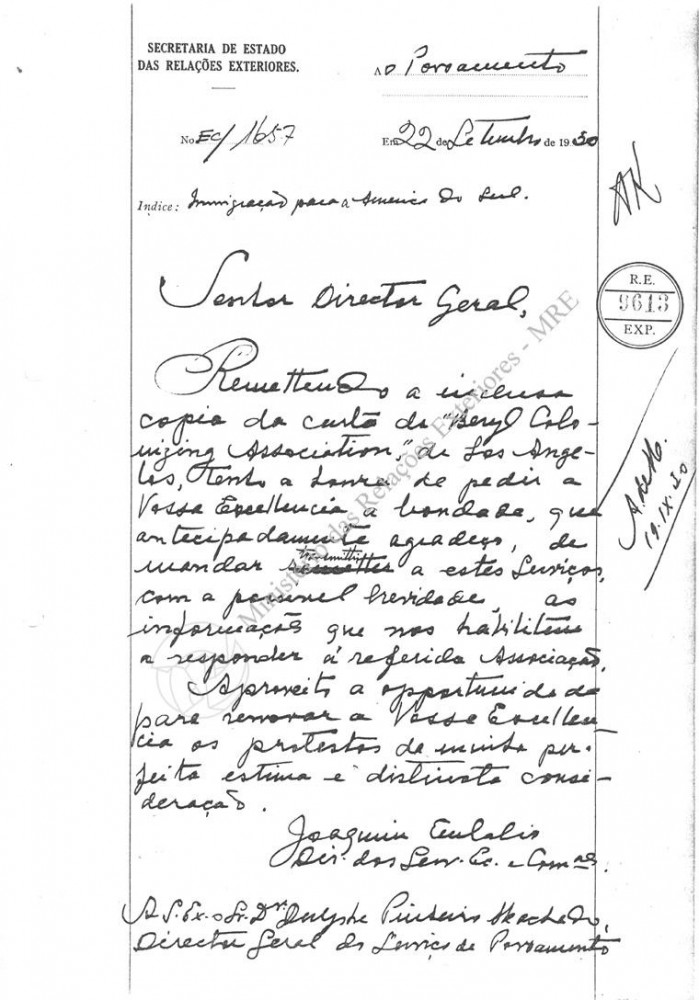 SECRETARIA DE ESTADO
DAS RELAÇÕES EXTERIORES.
Ao Povoamento
No EC/1657
Em 22 de Setembro de 1930
Indice: Immigração para a America do Sul.
AK
R.E.
9613
EXP.
Senhor Director Geral,
Remettendo a inclusa
copia da carta da "Beryl Colo-
nizing Association," de Los Ange-
les, tenho a honra de pedir a
Vossa Excellencia a bondade, que
antecipadamente agradeço, de
mandar transmittir a estes Serviços,
com a possivel brevidade, as
informações que nos habilitem
a responder á referida Associação.
Aproveito a opportunidade
para renovar a Vossa Excellen
cia os protestos da minha per-
feita estima e distincta consi-
deração.
19.IX.30
Joaquim Eulalio
Dir. dos Serv. Ec. e Comaes.
A S. Ex. o Sr. Dr. Dulphe Pinheiro Machado,
Director Geral do Serviço de Povoamento
Ministério das Relações Exteriores - MRE